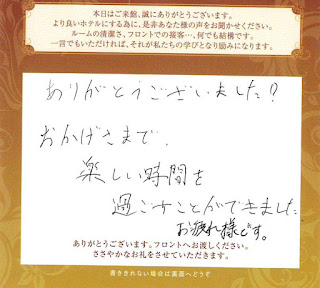 本日はご来館、誠にありがとうございます。
より良いホテルにする為に、是非あなた様の声をお聞かせください。
ルームの清潔さ、フロントでの接客…、何でも結構です。
一言でもいただければ、それが私たちの学びとなり励みになります。
ありがとうございました?
おかげさまで、
楽しい時間を
過ごすことができました
お疲れ様です。
ありがとうございます。フロントへお渡しください。
ささやかなお礼をさせていただきます。
書ききれない場合は裏面へどうぞ